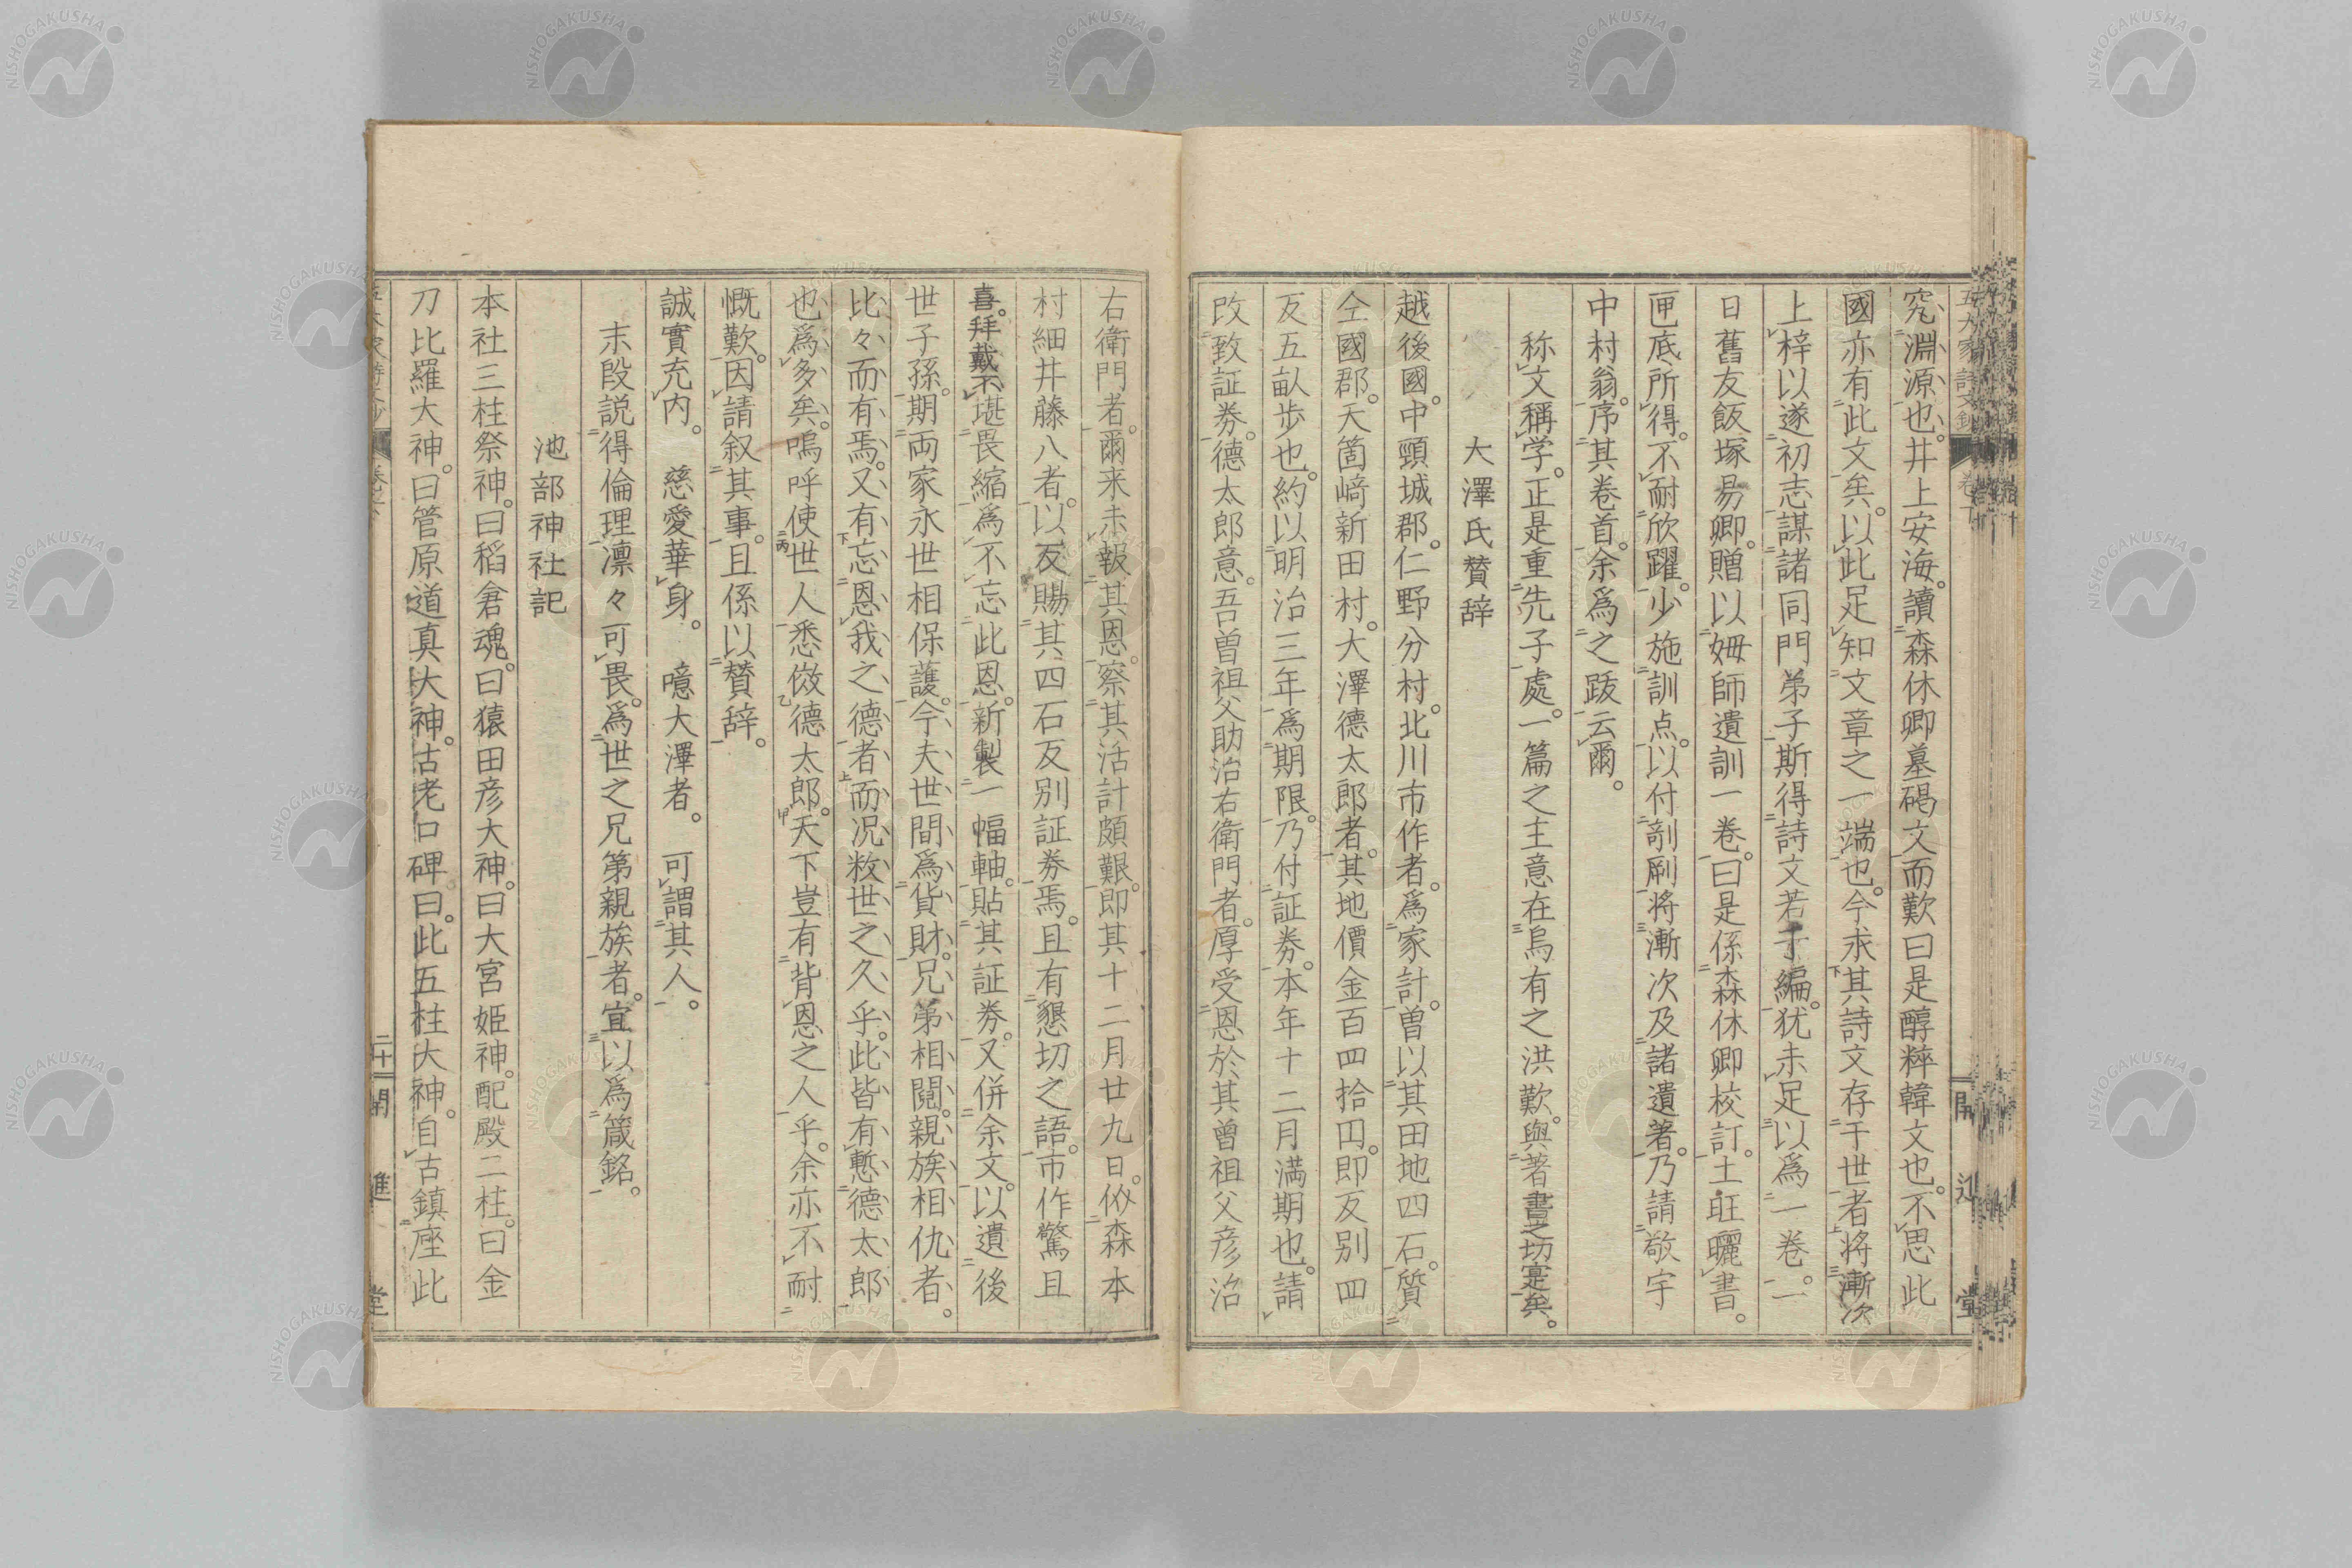 究淵源也。井上安海。讀森休卿墓碣文而歎曰是醇粹韓文也。不思此
國亦有此文矣。以此足知文章之一端也。今求其詩文存于世者将漸次
上梓以遂初志謀諸同門弟子斯得詩文若干編。犹未足以為一卷。一
日舊友飯塚易卿。贈以姆師遺訓一卷。曰是係森休卿校訂。土旺曬書。
匣底所得。不耐欣躍。少施訓点。以付剞劂将漸次及諸遺著。乃請敬宇
中村翁。序其卷首。余爲之跋云爾。
称文稱学。正是重先子處。一篇之主意在烏有之洪歎。與著書之切寔矣。
大澤氏賛辞
越後國。中頸城郡。仁野分村。北川市作者。爲家計。曽以其田地四石。質
仝國郡。天箇﨑新田村。大澤德太郎者。其地價金百四拾円。即反別四
反五畝歩也。約以明治三年爲期限。乃付証券。本年十二月満期也。請
改致証券。德太郎意。吾曽祖父助治右衛門者。厚受恩於其曽祖父彦治
右衛門者。爾来未報其恩。察其活計頗艱。即其十二月廿九日。㑊森本
村細井藤八者。以反賜其四石反別証券焉。且有懇切之語。市作驚且
喜。拜戴不堪畏縮爲不忘此恩。新製一幅軸。貼其証券。又併余文。以遺後
世子孫。期両家永世相保護。今夫世間爲貨財。兄弟相鬩。親族相仇者。
比々而有焉。又有忘恩我之德者而况救世之久乎。此皆有慙德太郎
也爲多矣。嗚呼使世人悉傚德太郎。天下豈有背恩之人乎。余亦不耐
慨歎。因請叙其事。且係以賛辞。
誠實充内。 慈愛華身。 噫大澤者。 可謂其人。
末段説得倫理凛々可畏。爲世之兄第親族者。宜以爲箴銘。
池部神社記
本社三柱祭神。曰稻倉魂。曰猿田彦大神。曰大宮姫神。配殿二柱。曰金
刀比羅大神。曰管原道真大神。古老口碑曰。此五柱大神。自古鎮座此